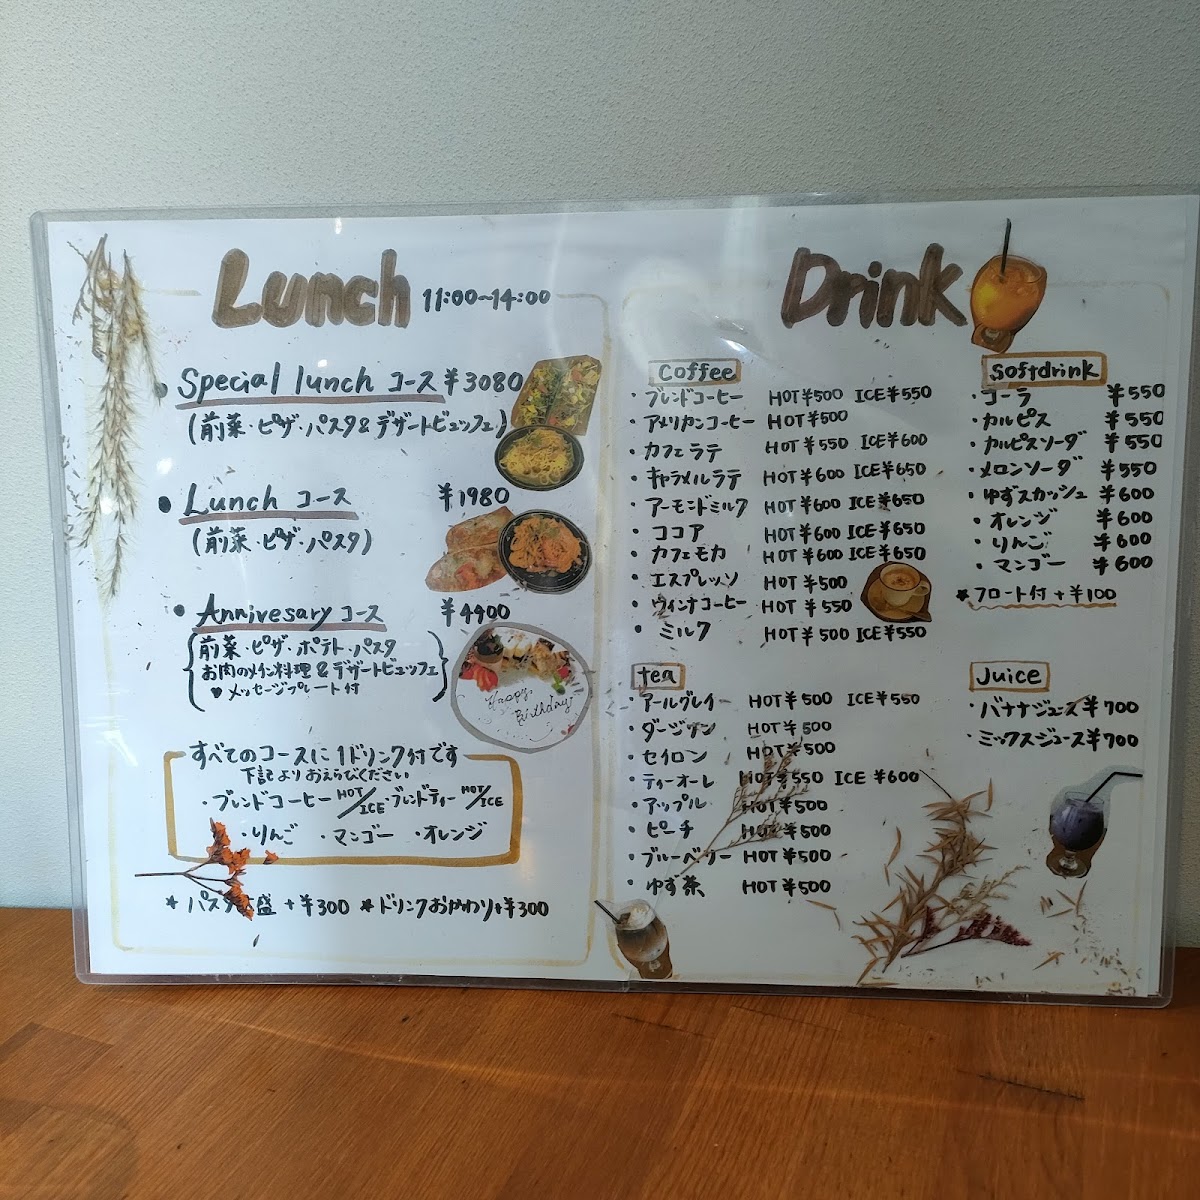 Lunch 11:00~14:00
• Special lunch コース ¥3080
(前菜・ピザ・パスタ&デザートビュッフェ)
• Lunch コース ¥1980
(前菜・ピザ・パスタ)
• Annivesary コース ¥4900
前菜・ピザ・ポテト・パスタ
お肉のメイン料理&デザートビュッフェ
♥メッセージプレート付
Happy
Birthday
すべてのコースに1ドリンク付です
下記よりおえらびください
・ブレンドコーヒーHOT/ICE ブレンドティーHOT/ICE
・りんご ・マンゴー ・オレンジ
* パスタ 盛 +¥300 * ドリンクおかわり+¥300
Drink
Coffee
・ブレンドコーヒー HOT¥500 ICE¥550
・アメリカンコーヒー HOT¥500
・カフェラテ HOT¥550 ICE¥600
・キャラメルラテ HOT¥600 ICE¥650
・アーモンドミルク HOT¥600 ICE¥650
・ココア HOT¥600 ICE¥650
・カフェモカ HOT¥600 ICE¥650
・エスプレッソ HOT¥500
・ウィンナコーヒー HOT¥550
・ミルク HOT¥500 ICE¥550
tea
・アールグレイ HOT¥500 ICE¥550
・ダージリン HOT¥500
・セイロン HOT¥500
・ティーオーレ HOT¥550 ICE¥600
・アップル HOT¥500
・ピーチ HOT¥500
・ブルーベリー HOT¥500
・ゆず茶 HOT¥500
Softdrink
・コーラ ¥550
・カルピス ¥550
・カルピスソーダ ¥550
・メロンソーダ ¥550
・ゆずスカッシュ ¥600
・オレンジ ¥600
・りんご ¥600
・マンゴー ¥600
★フロート付+¥100
Juice
・バナナジュース¥700
・ミックスジュース¥700